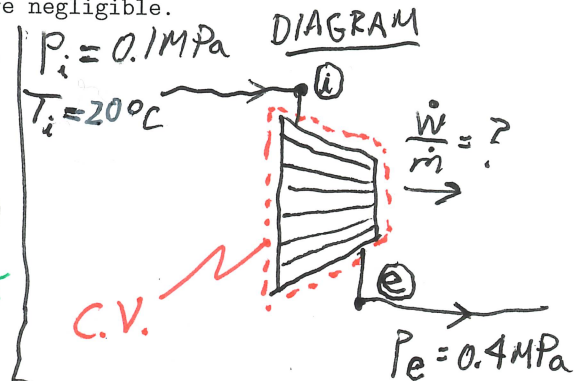 e negligible.
DIAGRAM
Pi = 0.1MPa
i
Ti = 20°C
Ẇ/ṁ = ?
C.V.
e
Pe = 0.4MPa